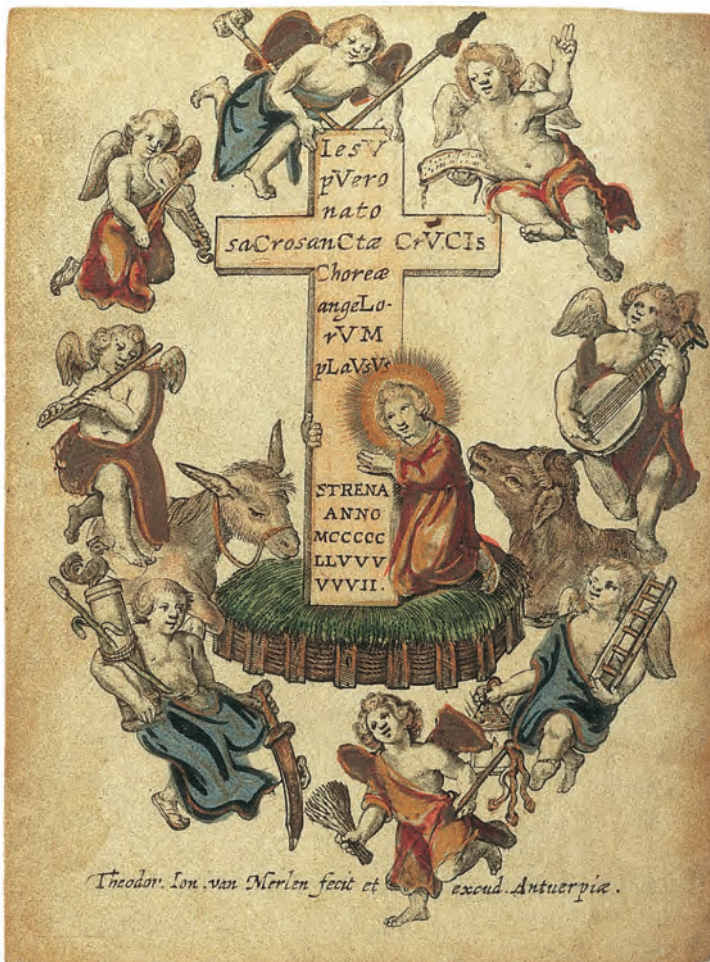 IesV
pVero
nato
saCrosanCtæ CrVCIs
Choreæ
angeLo-
rVM
pLaVsVs
STRENA
ANNO
MCCCCC
LLVVV
VVVII.
Theodor. Ion .van Merlen fecit et excud. Antuerpiæ .